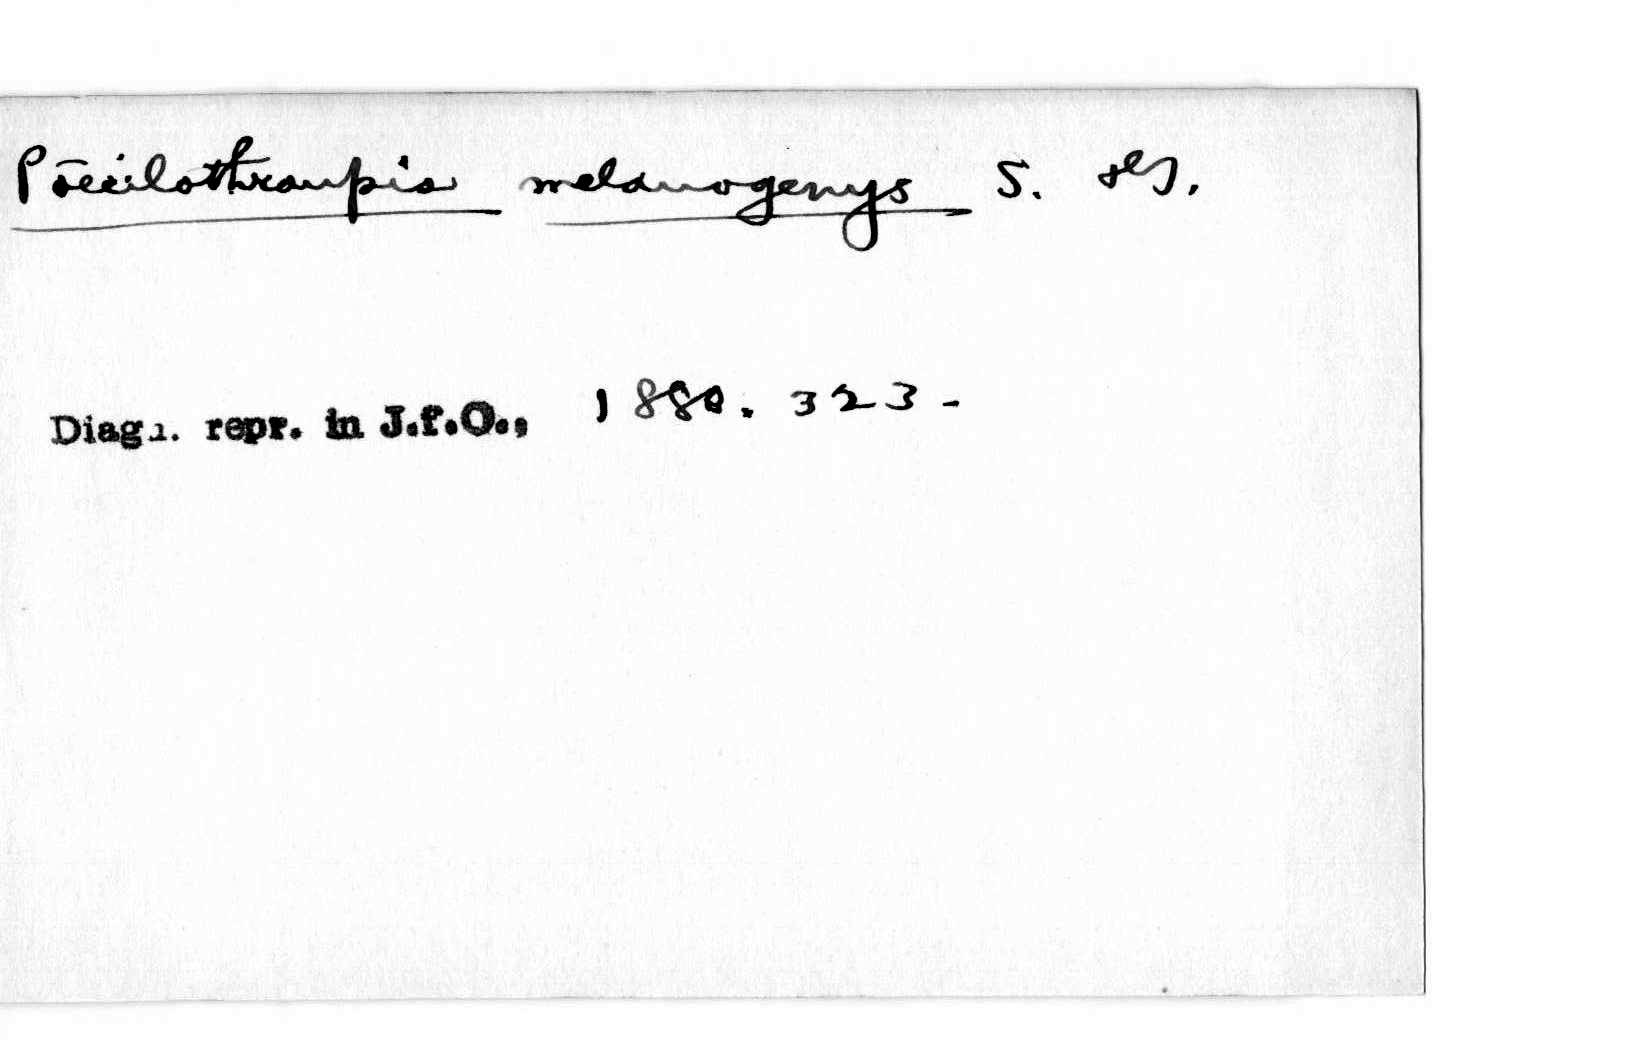 Pœcilothraupis melanogenys S.
Diagn. repr. in J.f.O., 1880. 323-